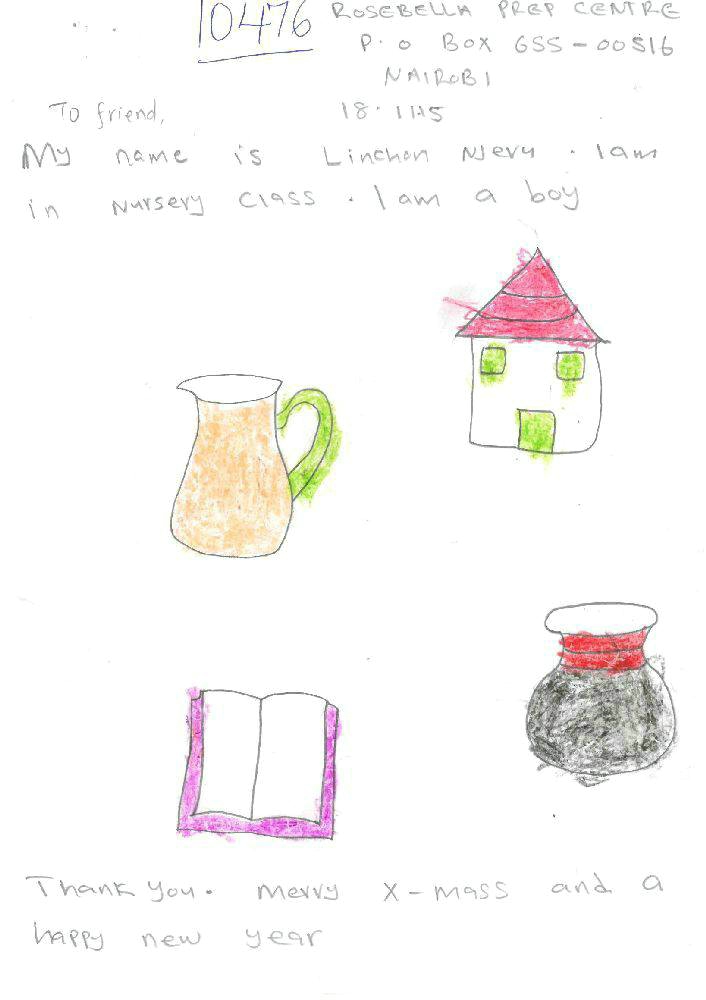 10476
ROSEBELLA PREP CENTRE
P. O BOX 655-00516
NAIROBI
To friend,
18. 11 15
My name is Linchon Njeru. I am
in Nursery Class. I am a boy
Thank you. merry X-mass and a
happy new year